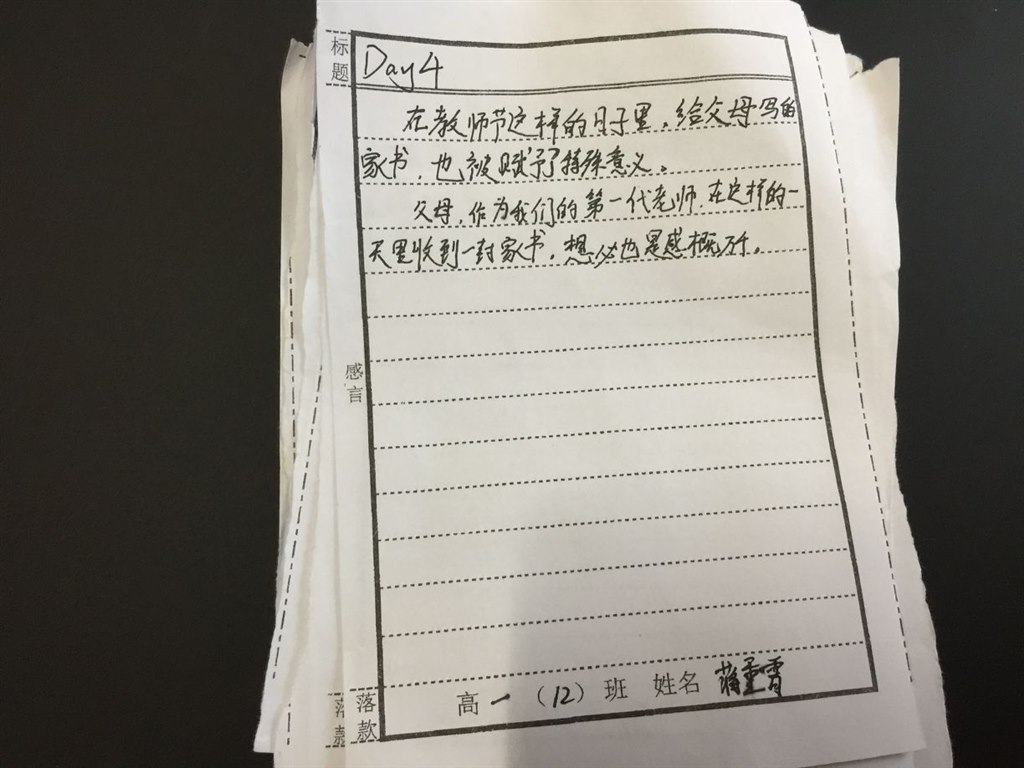 标题
Day4
在教师节这样的日子里，给父母写的
家书，也被赋予了特殊意义。
父母，作为我们的第一代老师，在这样的一
天里收到一封家书，想必也是感概万千。
感言
落款
高一（12）班 姓名
落款